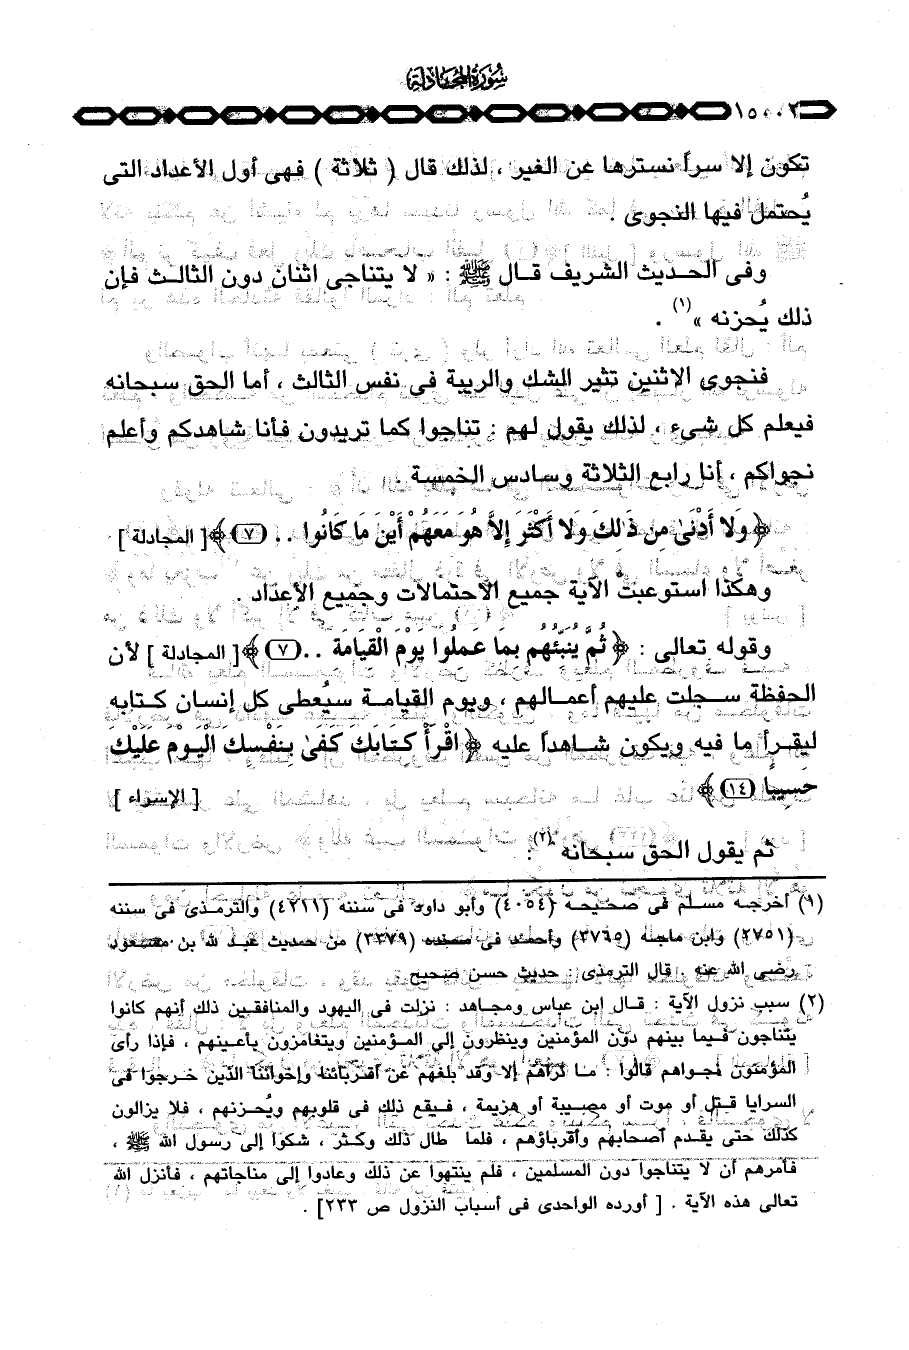 سورة المجادلة
١٥٠٠٢
تكون إلا سراً نسترها عن الغير ، لذلك قال ( ثلاثة ) فهى أول الأعداد التى
يُحتمل فيها النجوى .
وفى الحديث الشريف قال ﷺ : « لا يتناجى اثنان دون الثالث فإن
ذلك يُحزنه »(١) .
فنجوى الاثنين تثير الشك والريبة فى نفس الثالث ، أما الحق سبحانه
فيعلم كل شىء ، لذلك يقول لهم : تناجوا كما تريدون فأنا شاهدكم وأعلم
نجواكم ، أنا رابع الثلاثة وسادس الخمسة .
﴿ وَلا أَدْنَىٰ مِن ذَٰلِكَ وَلا أَكْثَرَ إِلاَّ هُوَ مَعَهُمْ أَيْنَ مَا كَانُوا .. (٧)﴾ [ المجادلة ]
وهكذا استوعبتْ الآية جميع الاحتمالات وجميع الأعداد .
وقوله تعالى : ﴿ ثُمَّ يُنَبِّئُهُم بِمَا عَمِلُوا يَوْمَ الْقِيَامَةِ ..(٧)﴾ [ المجادلة ] لأن
الحفظة سجلت عليهم أعمالهم ، ويوم القيامة سيُعطى كل إنسان كتابه
ليقرأ ما فيه ويكون شاهداً عليه ﴿ اقْرَأْ كِتَابَكَ كَفَىٰ بِنَفْسِكَ الْيَوْمَ عَلَيْكَ
حَسِيبًا (١٤)﴾ [ الإسراء ]
ثم يقول الحق سبحانه(٢) :
(١) أخرجه مسلم فى صحيحه (٤٠٥٤) وأبو داود فى سننه (٤٢١١) والترمذى فى سننه
(٢٧٥١) وابن ماجه (٣٧٦٥) وأحمد فى مسنده (٣٣٧٩) من حديث عبد لله بن مسعود
رضى الله عنه . قال الترمذى : حديث حسن صحيح .
(٢) سبب نزول الآية : قال ابن عباس ومجاهد : نزلت فى اليهود والمنافقين ذلك أنهم كانوا
يتناجون فيما بينهم دون المؤمنين وينظرون إلي المؤمنين ويتغامزون بأعينهم ، فإذا رأى
المؤمنون نجواهم قالوا : ما نراهم إلا وقد بلغهم عن أقربائنا وإخواننا الذين خرجوا فى
السرايا قتل أو موت أو مصيبة أو هزيمة ، فيقع ذلك فى قلوبهم ويُحزنهم ، فلا يزالون
كذلك حتى يقدم أصحابهم وأقرباؤهم ، فلما طال ذلك وكثر ، شكوا إلى رسول الله ﷺ ،
فأمرهم أن لا يتناجوا دون المسلمين ، فلم ينتهوا عن ذلك وعادوا إلى مناجاتهم ، فأنزل الله
تعالى هذه الآية . [ أورده الواحدى فى أسباب النزول ص ٢٣٣] .